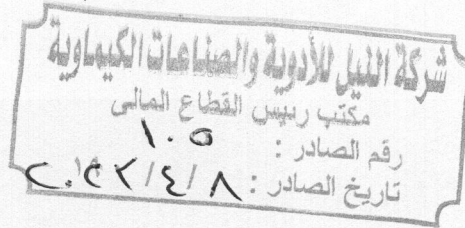 شركة النيل للأدوية والصناعات الكيماوية
مكتب رئيس القطاع المالى
رقم الصادر : ١٠٥
تاريخ الصادر : ٨ / ٤ / ٢٠٢٣